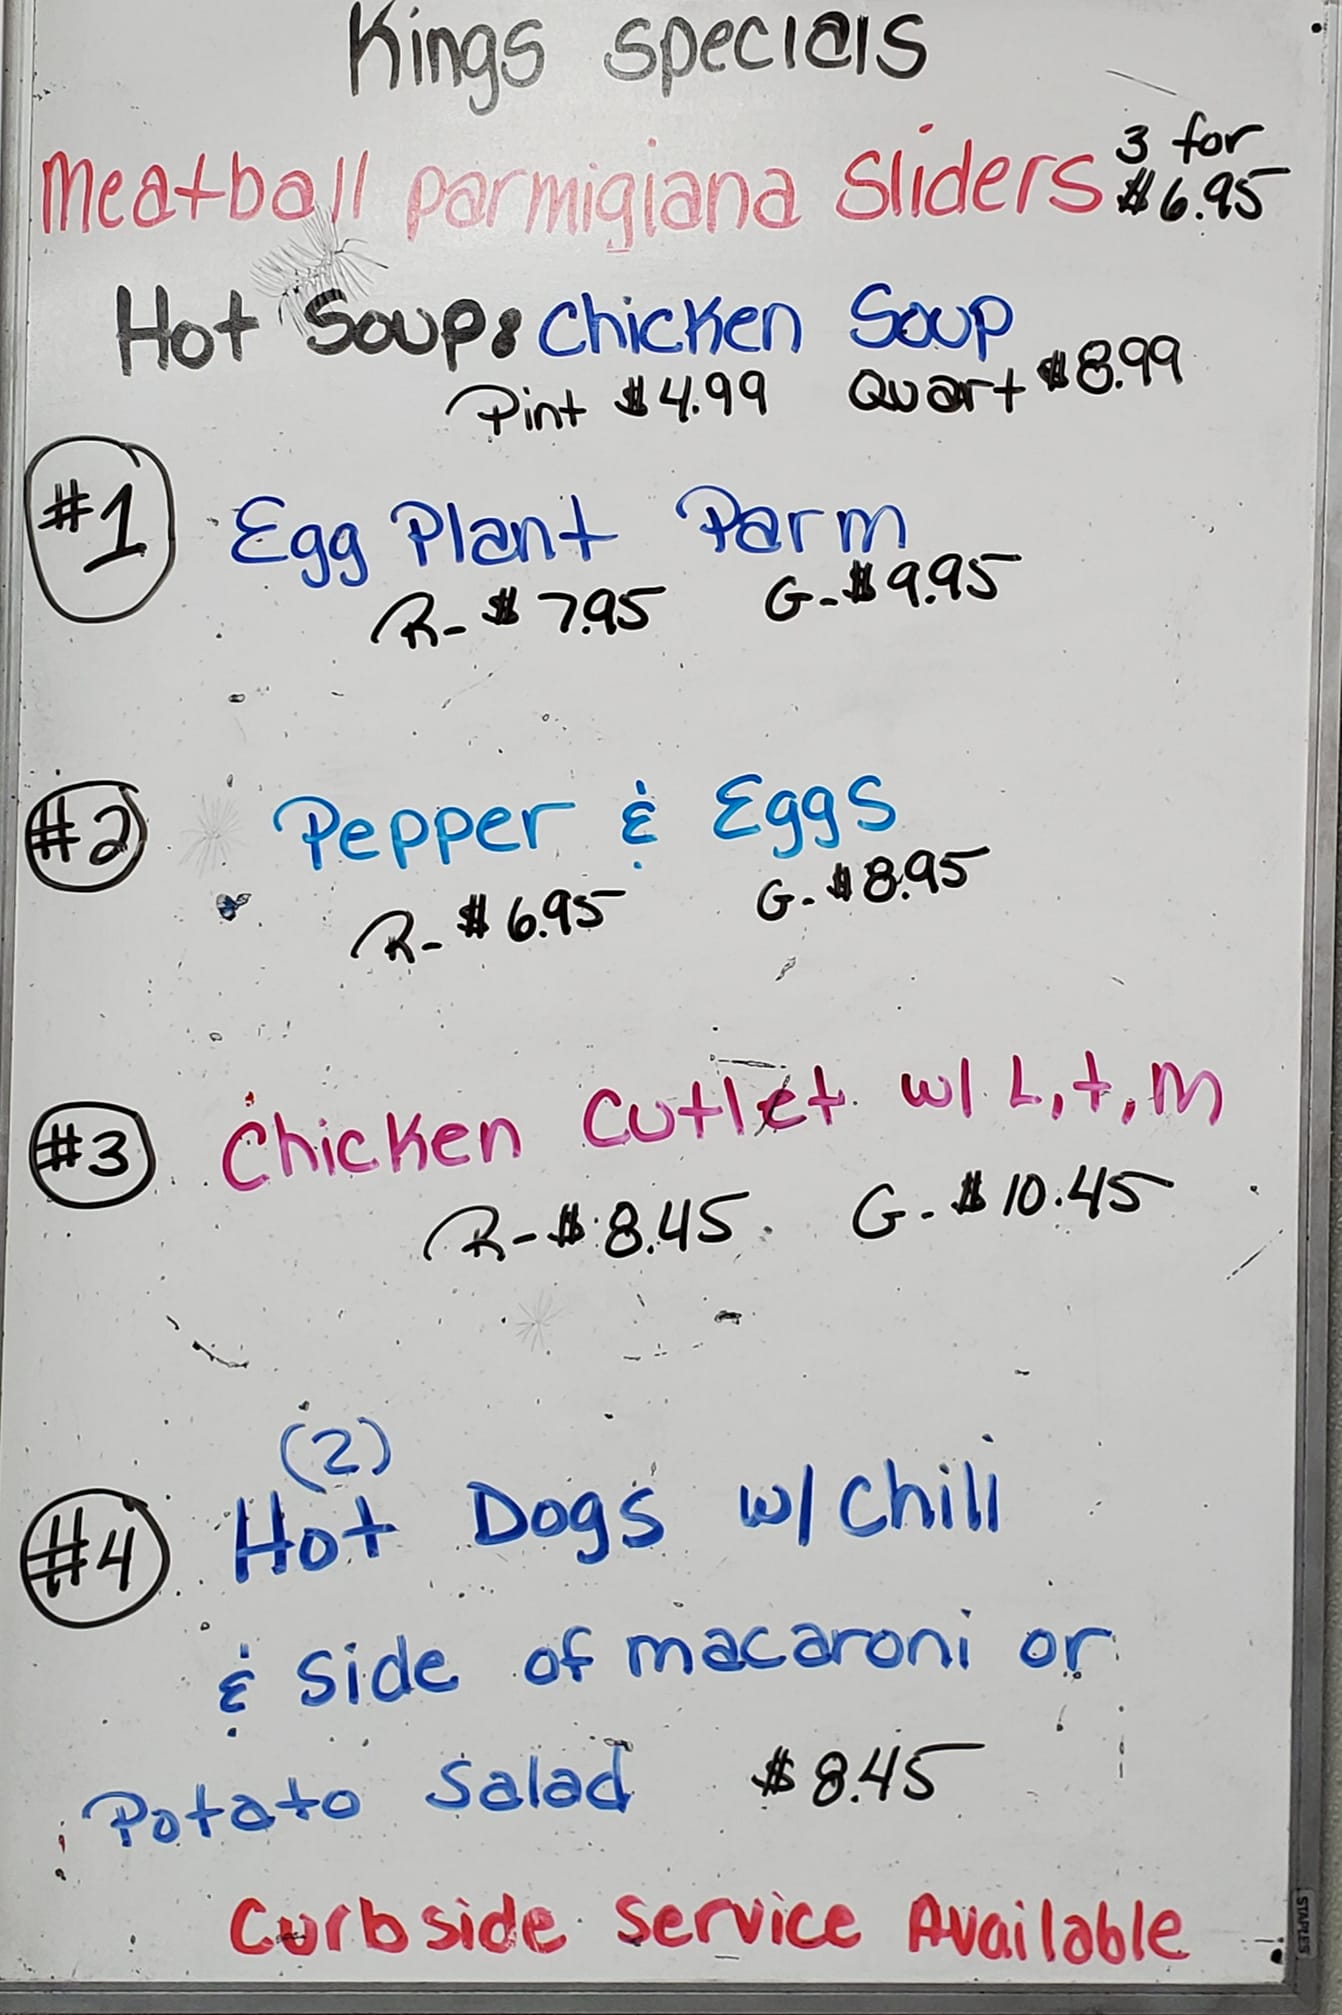 Kings specials
Meatball parmigiana Sliders 3 for
$6.95
Hot Soup: Chicken Soup
Pint $4.99 Quart $8.99
#1 Egg Plant Parm
R- $7.95 G- $9.95
#2 Pepper & Eggs
R- $6.95 G- $8.95
#3 Chicken Cutlet w/ L, t, M
R- $8.45 G- $10.45
(2)
#4 Hot Dogs w/ Chili
& side of macaroni or
Potato Salad $8.45
Curbside Service Available
STAPLES